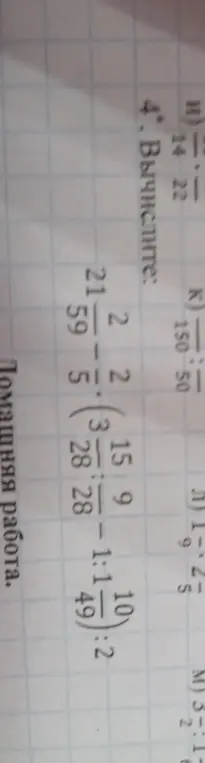 и) /14 · /22 к) /150 : /50 л) 1 /9 · 2 /5 м) 3 /2 : 1
4*. Вычислите:
21 2/59 − 2/5 · (3 15/28 : 9/28 − 1 : 1 10/49) : 2
Домашняя работа.